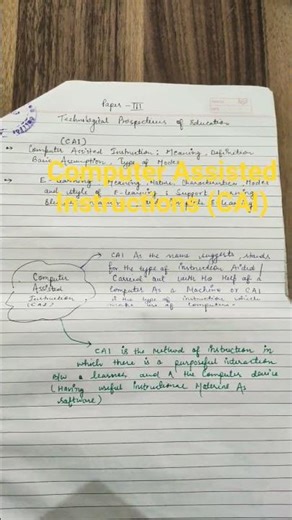 Paper - III
Technological Prospectives of Education
(CAI)
Computer Assisted Instruction; Meaning, Definition
Basic Assumption Type of Modes
E-learning Meaning, Nature, Characteristics Modes
and style of E-learning; Support
Computer Assisted
Instructions (CAI)
Computer
Assisted
Instruction
(CAI)
CAI As the name suggests stands
for the type of instruction Aided /
Carried out with the Half of a
Computer As a Machine or CAI
is the type of instruction which
make use of Computers
CAI is the Method of instruction in
which there is a purposeful interaction
b/w a learner and the Computer device
(Having useful instructional Material As
software)